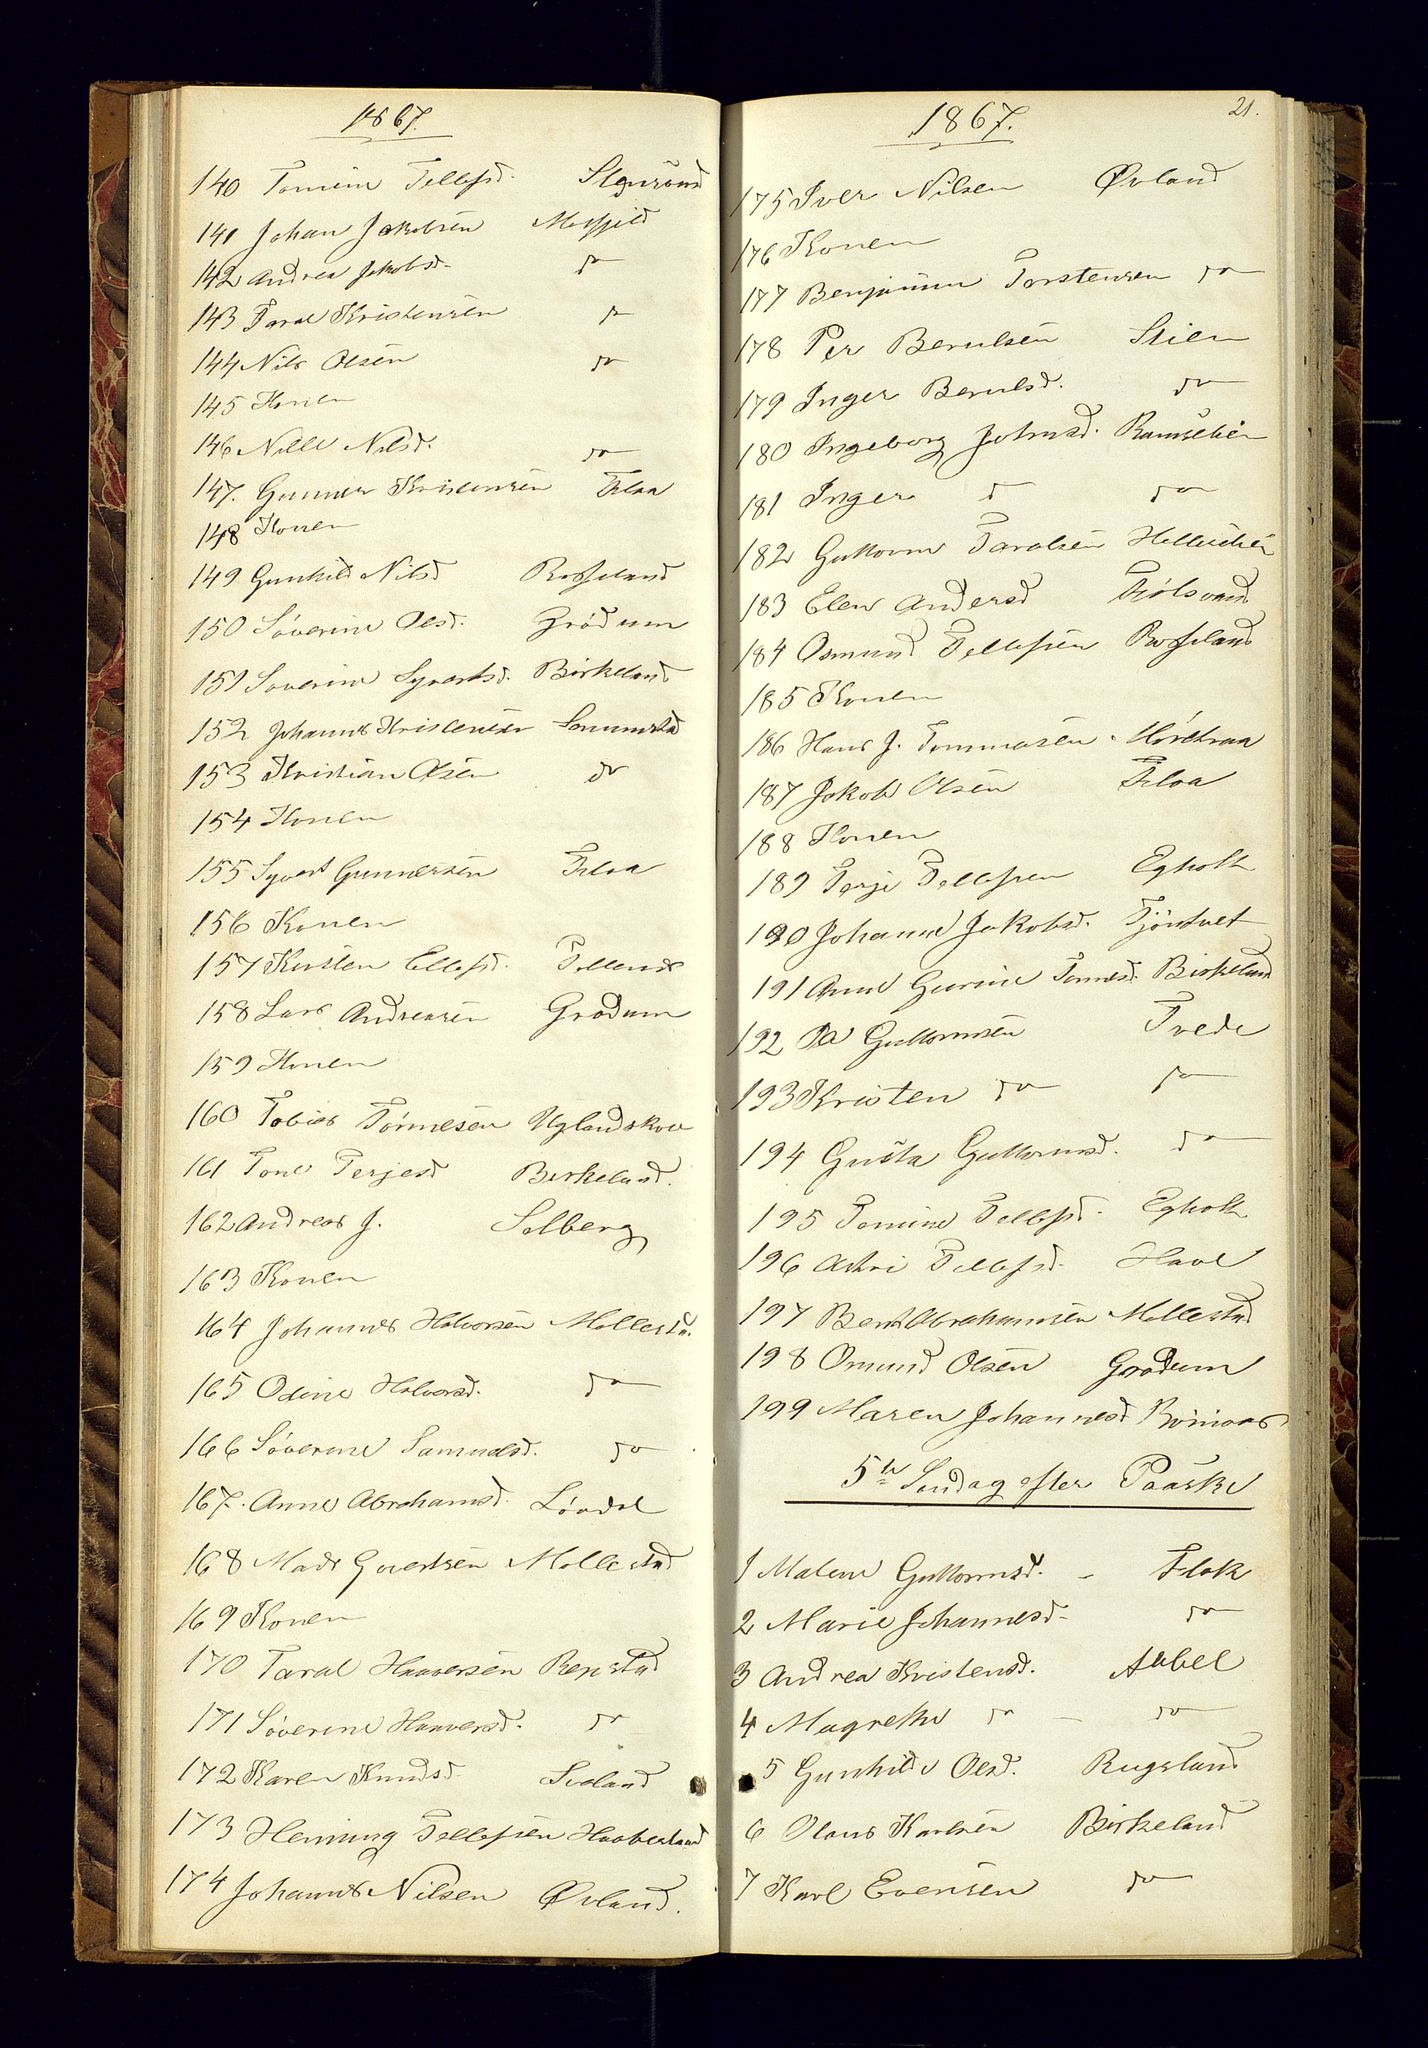 1867.
140 Tomine Tellefsd.
141 Johan Jakobsen Mosfjeld
142 Andrea Jakobsd. do
143 Taral Kristensen do
144 Nils Olsen do
145 Konen
146 Nille Nilsd. do
147. Gunner Kristensen Flaa
148 Konen
149 Gunhild Nilsd Rosseland
150 Söverine Olsd. Grödum
151 Severine Syvertsd. Birkeland
152 Johannes Kristensen
153 Kristian Olsen do
154 Konen
155 Syvert Gunnersen Flaa
156 Konen
157 Kirsten Ellefsd.
158 Lars Andreasen Grødum
159 Konen
160 Tobias Tønnesen Uglandskov
161 Tone Terjesd Birkeland.
162 Andreas J. Solberg
163 Konen
164 Johannes Halvorsen Mollestad
165 Odine Halvorsd. do
166 Söverine Samuelsd. do
167. Anne Abrahamsd. Løvdal
168 Mads Gjertsen Mollestad
169 Konen
170 Taral Haaversen Repstad
171 Söverine Haaversd. do
172 Karen Knudsd.
173 Henning Tellefsen Haaberland
174 Johannes Nilsen Øvland.
1867.
21.
175 Iver Nilsen Øvland
176 Konen
177 Benjamin Torstensen do
178 Per Berulsen Stien
179 Inger Berulsd. do
180 Ingeborg Johnsd.
181 Inger d do
182 Guttorm Taralsen
183 Elen Andersd
184 Osmund Tellefsen Rosseland
185 Konen
186 Hans J. Tommasen
187 Jakob Olsen Flaa
188 Konen
189 Terje Tellefsen Egholt
190 Johanne Jakobsd. Tjöntvet
191 Anne Gurine Tønnesd. Birkeland
192 Per Guttormsen Tvede
193 Kristen do do
194 Gusta Guttormsd. do
195 Tomine Tellefsd. Egholt
196 Tellefsd. Have
197 Bent Abrahamsen Mollestad
198 Omund Olsen Grødum
199 Maren Johannesd
5te Söndag efter Paaske
1 Malene Guttormsd. - Flak
2 Marie Johannesd- do
3 Andrea Kristensd. Aabel
4 Magrethe do - do
5 Gunhilde Olsd. Rugsland
6 Olaus Karlsen Birkeland
7 Karl Evensen do